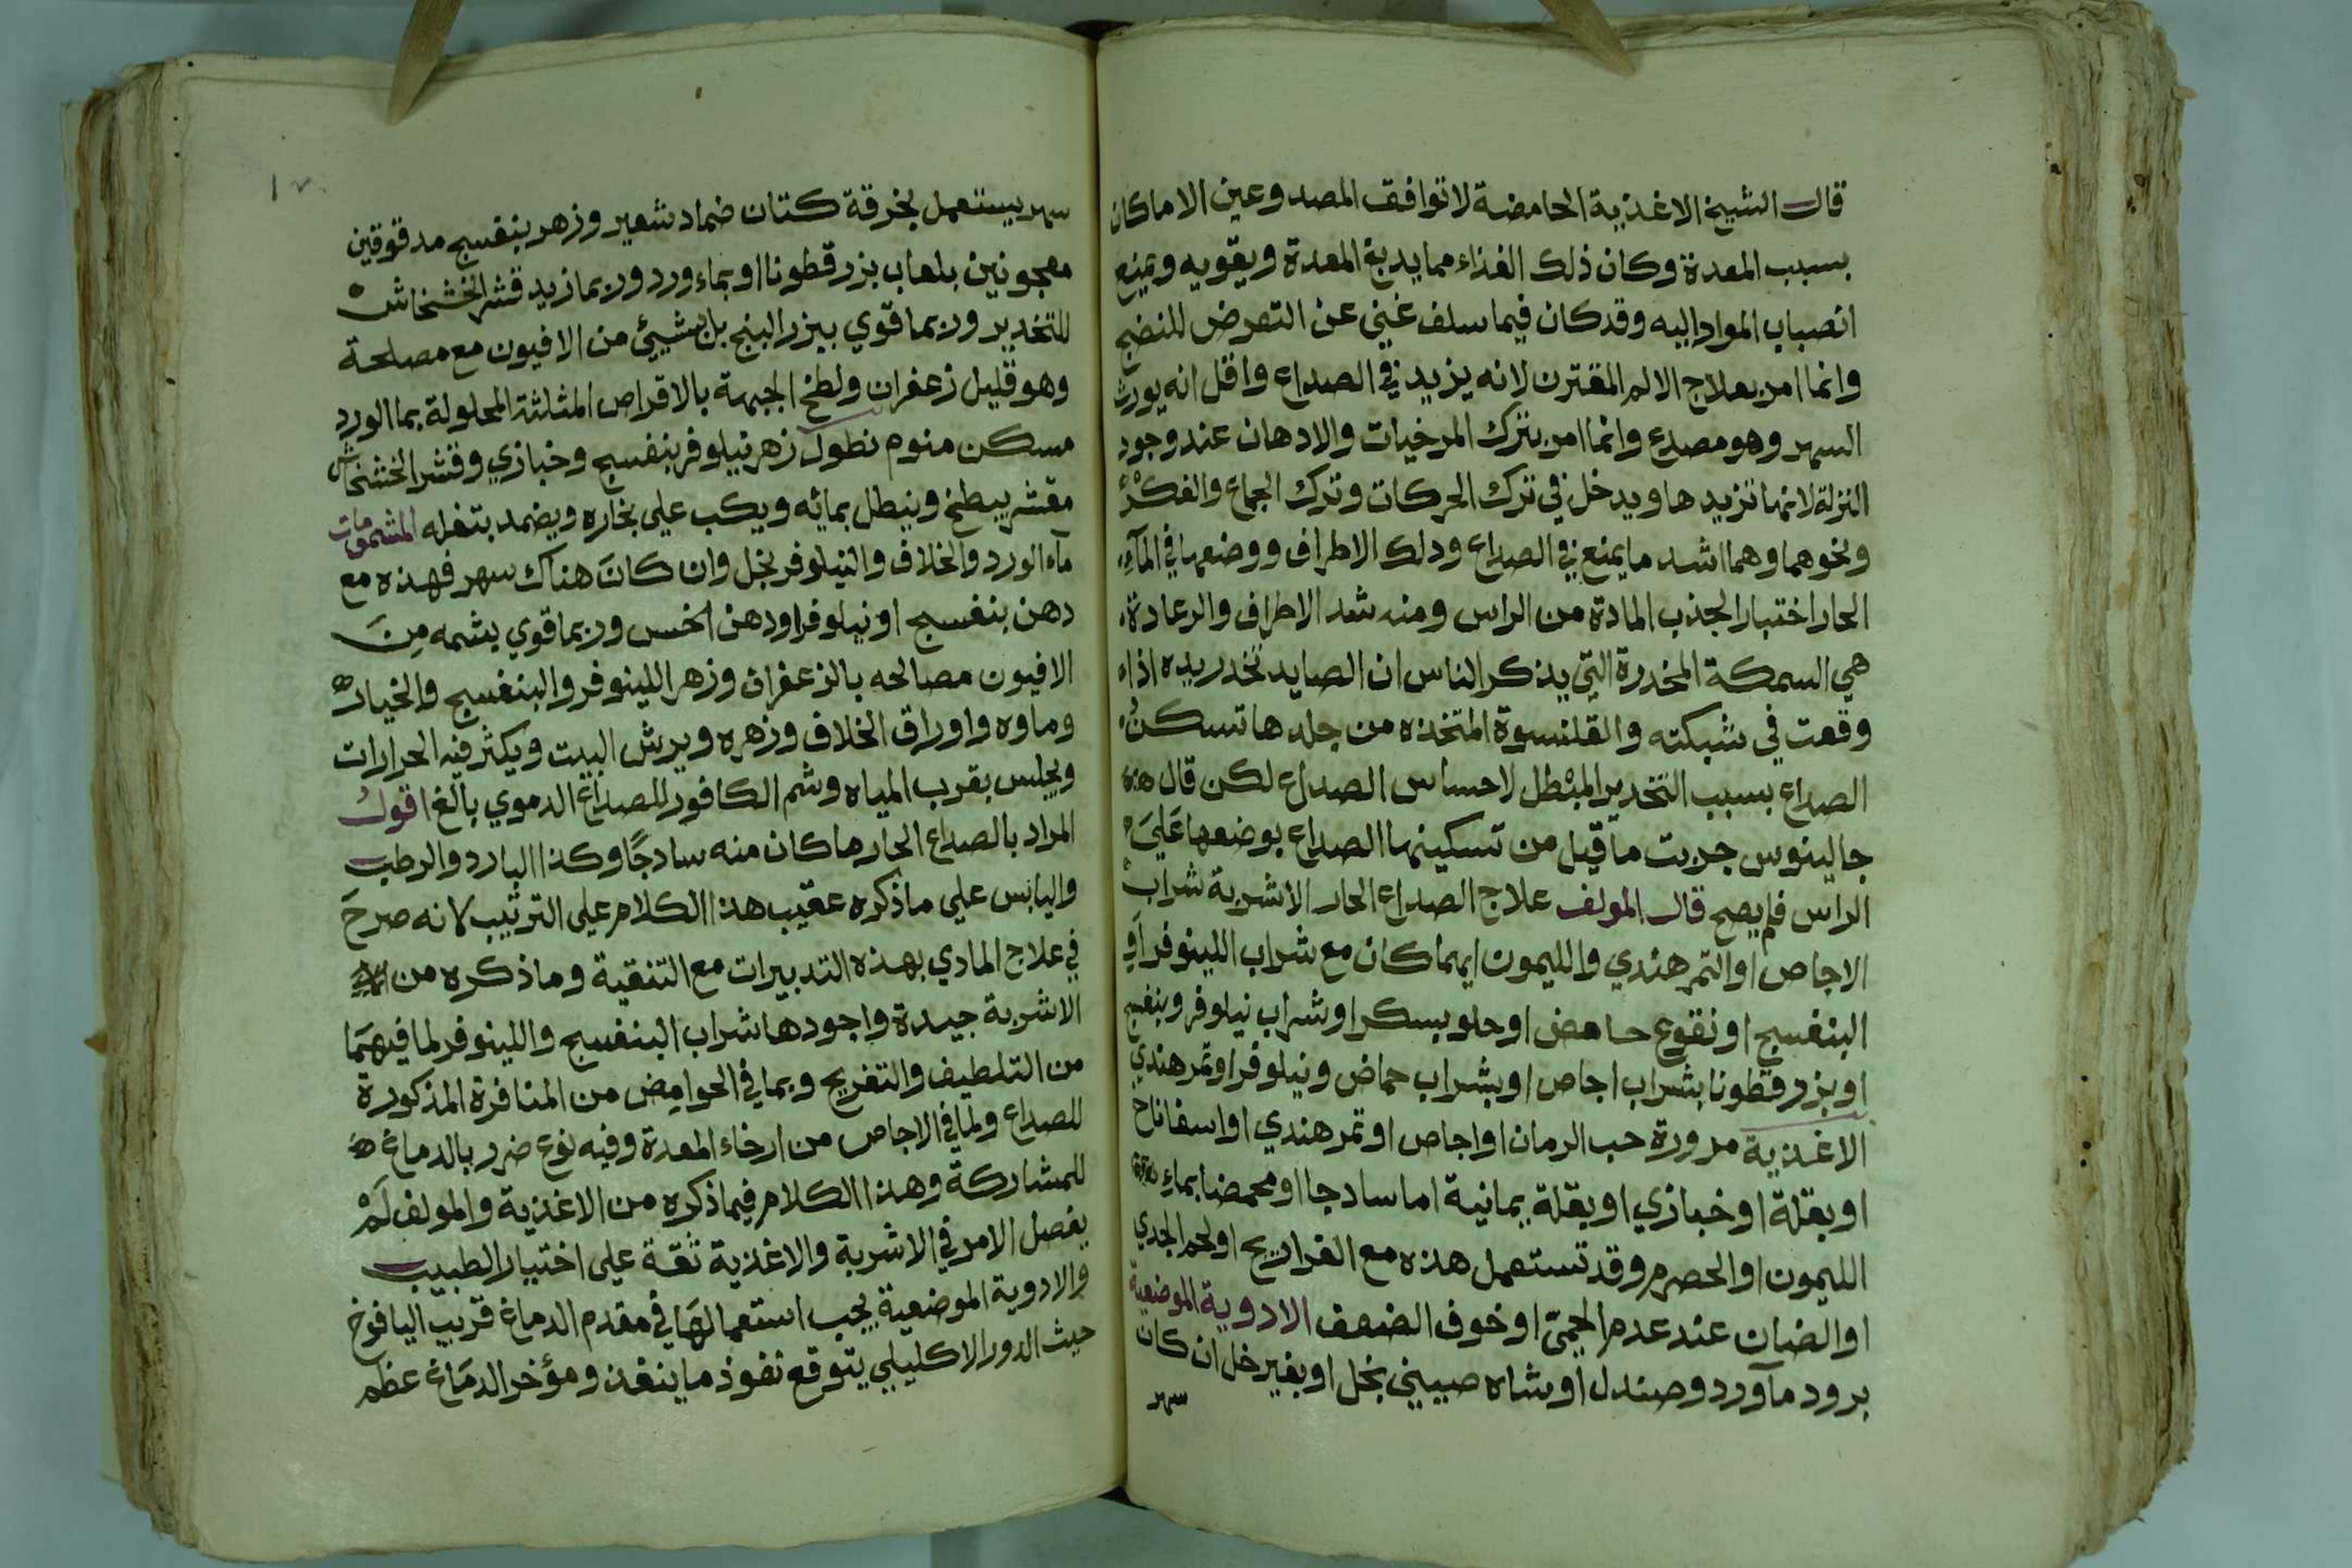 قال الشيخ الاغذية الحامضة لا توافق المصدوعين الا ما كان
بسبب المعدة وكان ذلك الغذاء مما يدبغ المعدة ويقويه ويمنع
انصباب المواد اليه وقد كان فيما سلف غني عن التعرض للنضج
وانما امر بعلاج الالم المقترن لانه يزيد في الصداع واقل انه يورث
السهر وهو مصدع وانما امر بترك المرخيات والادهان عند وجود
النزلة لانها تزيدها ويدخل في ترك الحركات وترك الجماع والفكر
ونحوهما وهما اشد ما يمنع في الصداع ودلك الاطراف ووضعها في الماء
الحار اختبار الجذب المادة من الراس ومنه شد الاطراف والرعادة
هي السمكة المخدرة التي يذكر الناس ان الصايد تخدر يده اذا
وقعت في شبكته والقلنسوة المتخذه من جلدها تسكن
الصداع بسبب التخدير المبطل لاحساس الصداع لكن قال
جالينوس جربت ما قيل من تسكينها الصداع بوضعها علي
الراس فلم يصح قال المولف علاج الصداع الحار الاشربة شراب
الاجاص او التمر هندي والليمون ايهما كان مع شراب اللينوفر او
البنفسج او نقوع حامض او حلو بسكر او شراب نيلوفر وبنفسج
او بزر قطونا بشراب اجاص او بشراب حماض ونيلوفر او تمر هندي
الاغذية مزورة حب الرمان او اجاص او تمر هندي او اسفاناخ
او بقلة او خبازي او بقلة يمانية اما ساد جا او محمضا بماء
الليمون او الحصرم وقد تستعمل هذه مع الفراريج او لحم الجدي
او الضان عند عدم الحمي او خوف الضعف الادوية الموضعية
برود مآورد وصندل او شاه صيني بخل او بغير خل ان كان
سهر
١٧
سهر يستعمل بخرقة كتان ضماد شعير وزهر بنفسج مدقوقين
معجونين بلعاب بزر قطونا او بماء ورد وربما زيد قشر الخشخاش
للتخدير وربما قوي ببزر البنج بل بشيئ من الافيون مع مصلحة
وهو قليل زعفران ولطخ الجبهة بالاقراص المثلثة المحلولة بما الورد
مسكن منوم نطول زهر نيلوفر بنفسج وخبازي وقشر الخشخاش
مقشر يطبخ وينطل بمائه ويكب علي بخاره ويضمد بتفله المشمومات
مآء الورد والخلاف والنيلوفر بخل وان كان هناك سهر فهذه مع
دهن بنفسج او نيلوفر او دهن الخس وربما قوي بشمه من
الافيون مصالحه بالزعفران وزهر اللينوفر والبنفسج والخيار
وماوه واوراق الخلاف وزهره ويرش البيت ويكثر فيه الحرارات
ويجلس بقرب المياه وشم الكافور للصداع الدموي بالغ اقول
المراد بالصداع الحار ما كان منه سادجًا وكذا البارد والرطب
واليابس علي ما ذكره عقيب هذا الكلام علي الترتيب لانه صرح
في علاج المادي بهذه التدبيرات مع التنقية وما ذكره من
الاشربة جيدة واجودها شراب البنفسج واللينوفر لما فيهما
من التلطيف والتفريح وبما في الحوامض من المنافرة المذكورة
للصداع ولما في الاجاص من ارخاء المعدة وفيه نوع ضرر بالدماغ
للمشاركة وهذا الكلام فيما ذكره من الاغذية والمولف لم
يفصل الامر في الاشربة والاغذية ثقة علي اختيار الطبيب
والادوية الموضعية يجب استعمالها في مقدم الدماغ قريب اليافوخ
حيث الدور الاكليلي يتوقع نفوذ ما ينفذ ومؤخر الدماغ عظم